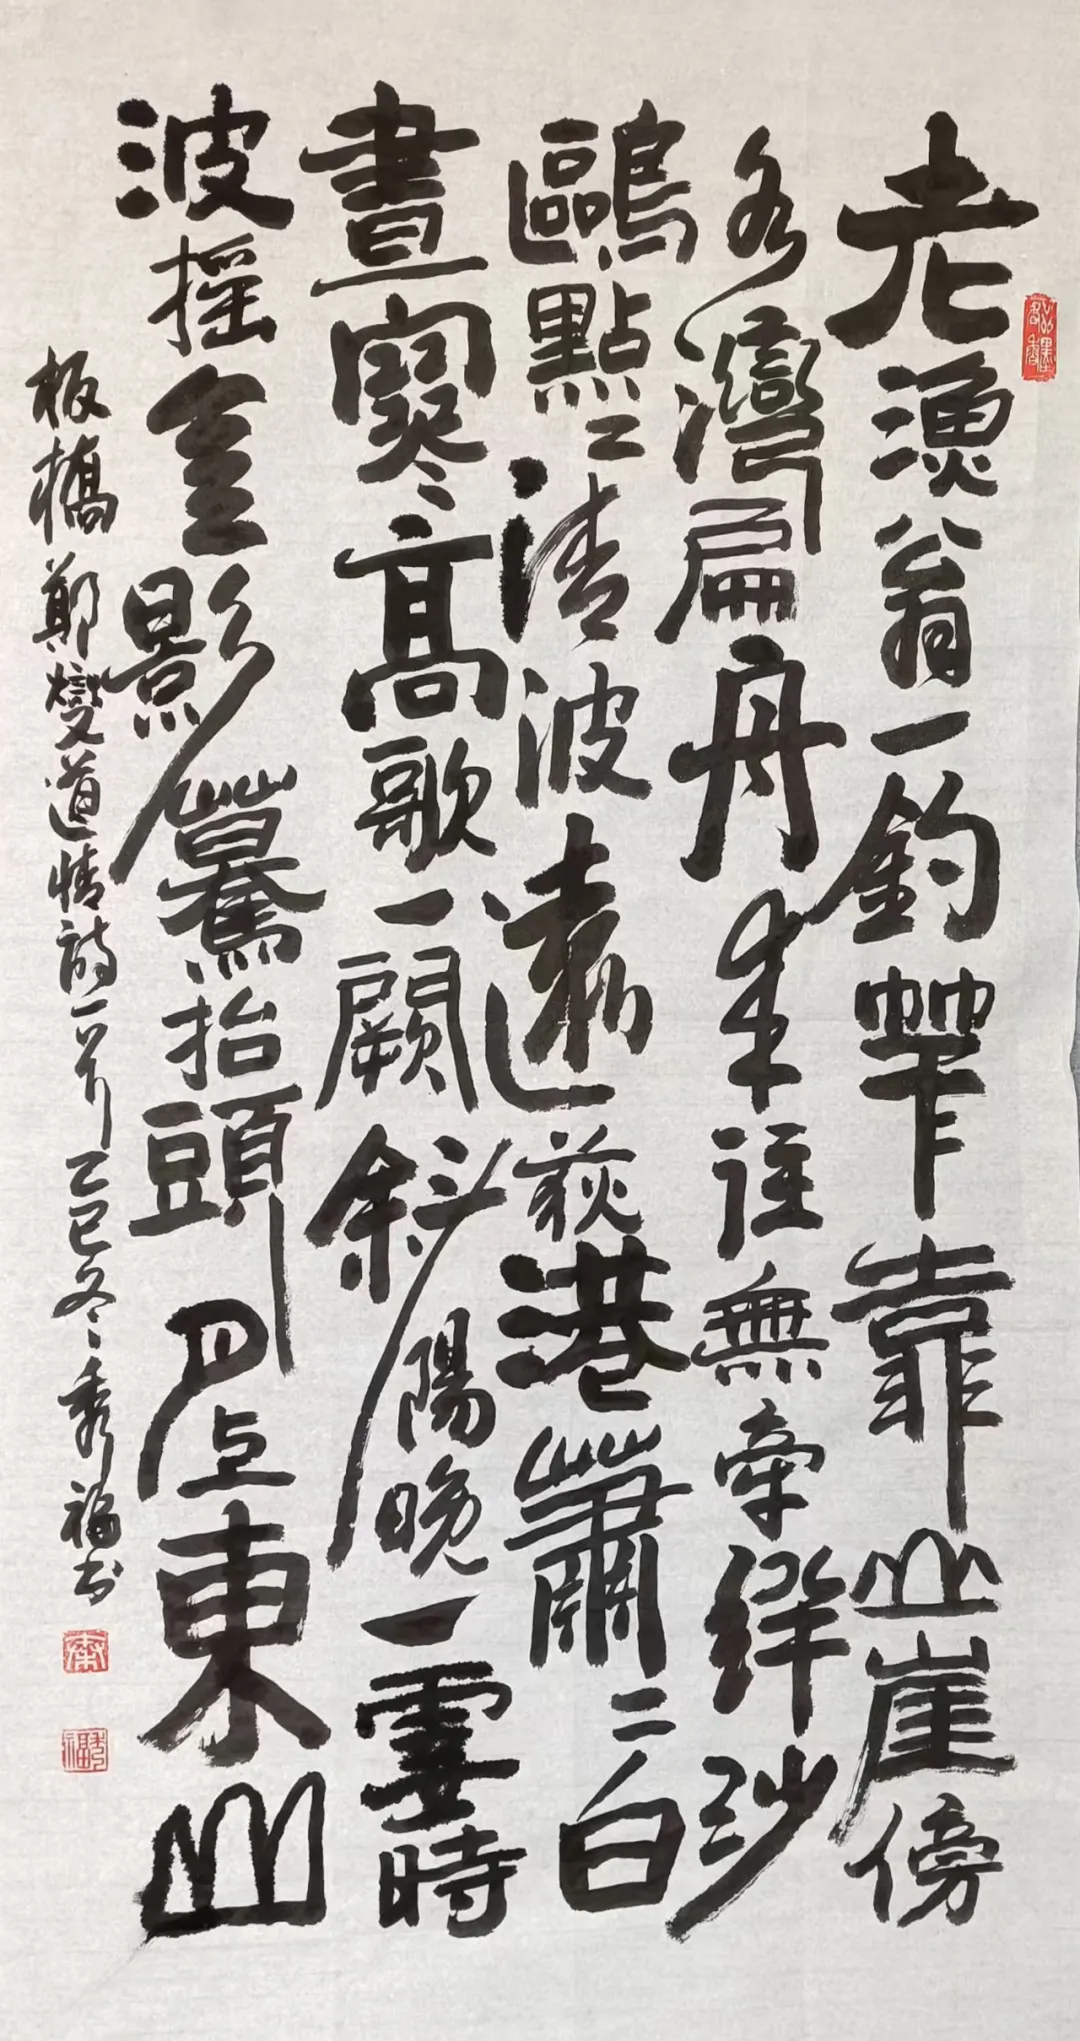 老漁翁一釣竿靠山崖傍
水灣扁舟來往無牽絆沙
鷗點二清波遠荻港蕭二白
晝寒高歌一闋斜陽晚一霎時
波搖金影驀抬頭月上東山
板橋鄭燮道情詩一首乙巳冬秀福书